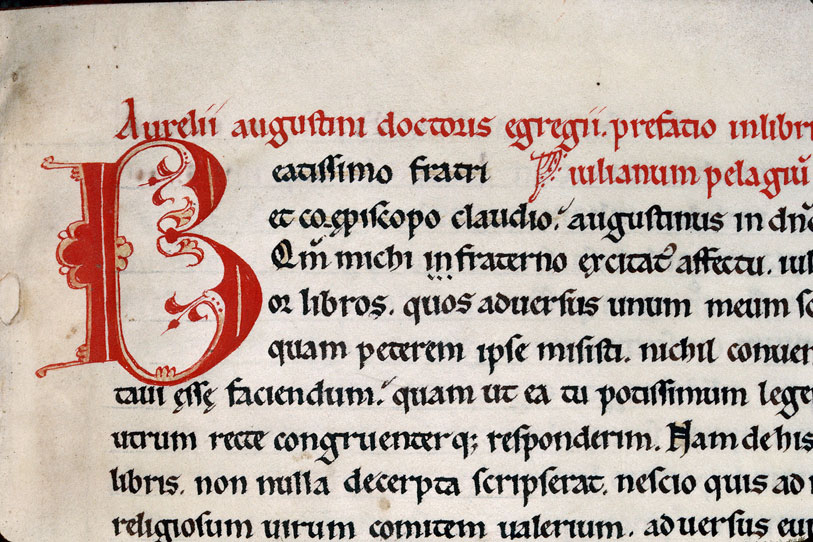 Aurelii augustini doctoris egregii. prefatio inlibri
Beatissimo fratri iulianum pelagiū
et coępiscopo claudio. augustinus in dnō
Qm̄ michi in fraterno ęxcitat affectu. iul
or libros. quos aduersus unum meum sc
quam peterem ipse misisti. nichil conuen
taui ęssę faciendum. quam ut ea tu potissimum lege
utrum recte congruenterq; responderim. Nam de his
libris. non nulla decerpta scripserat. nescio quis ad
religiosum uirum comitem ualerium. aduersus eu